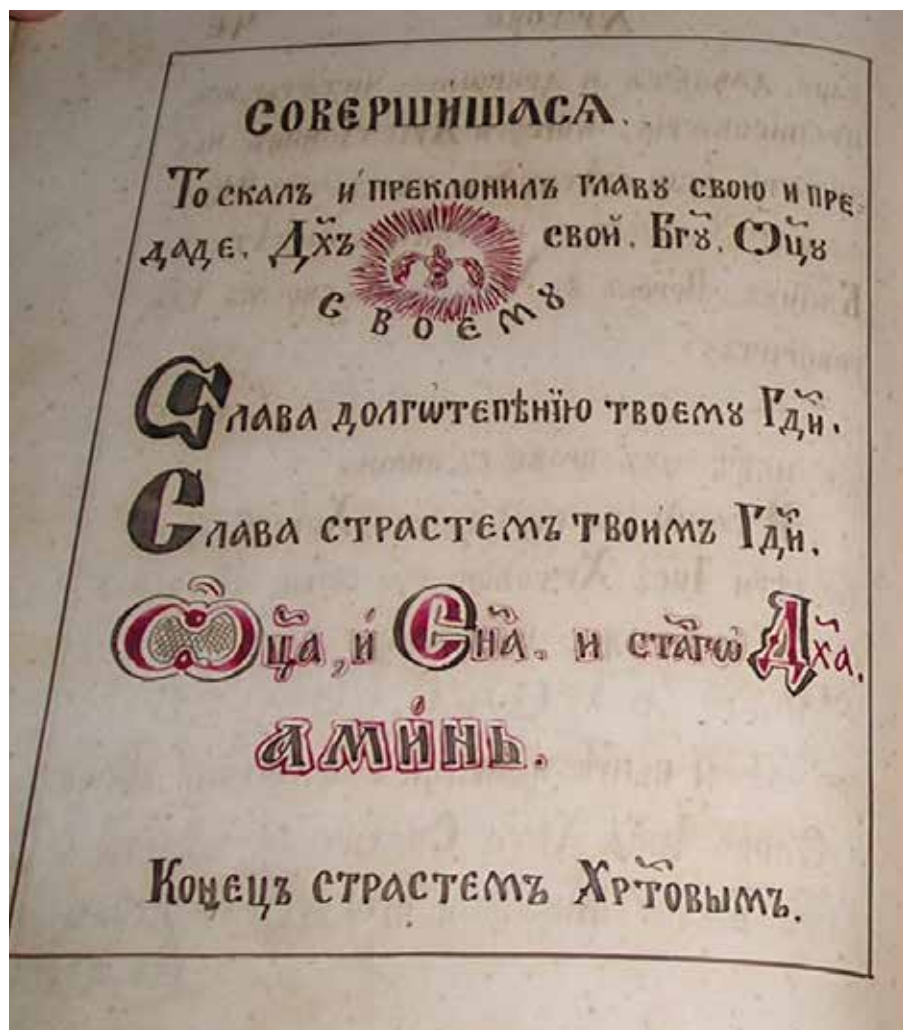 СОВЕРШИШАСѦ.
То скалъ и́ преклонилъ главꙋ свою и пре-
даде. Дх҃ъ свой. Бг҃ꙋ. Ѻц҃ꙋ
своемꙋ
Слава долгѡтепѣнїю твоемꙋ Гд҃и.
Слава страстемъ твоимъ Гд҃и.
Ѻц҃а, и́ Сн҃а. и ст҃агѡ Дх҃а.
ами́нь.
Конецъ страстемъ Хрт҃овымъ.